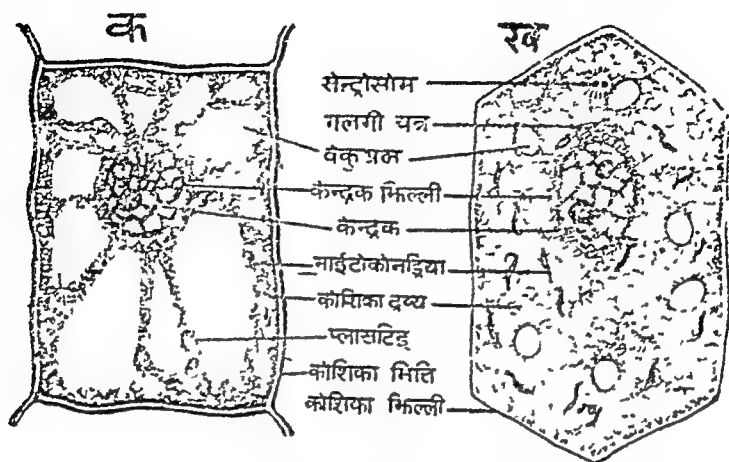 क
ख
सेन्ट्रोसोम
गलगी यंत्र
वैकुअम
केन्द्रक झिल्ली
केन्द्रक
माईटोकोनड्रिया
कोशिका द्रव्य
प्लासटिड
कोशिका भित्ति
कोशिका झिल्ली